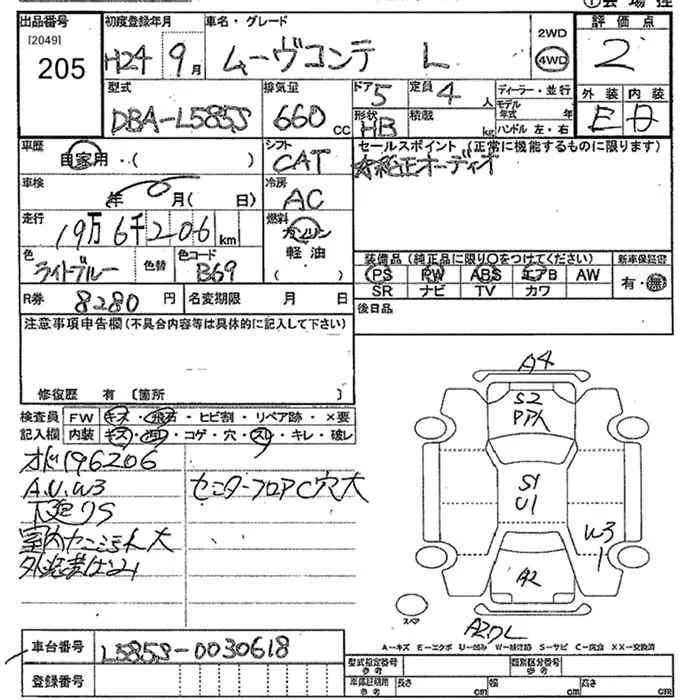 ①会場控
出品番号 初度登録年月 車名・グレード 2WD 評価点
[2049]
205
H24 9月 ムーヴコンテ L 4WD 2
型式 排気量 ドア 5 定員 4人 ディーラー・並行 外装 内装
DBA-L585S 660cc 形状 HB 積載 kg モデル年式 年 ハンドル 左・右 E D
車歴 自家用・( ) シフト CAT セールスポイント (正常に機能するものに限ります)
純正オーディオ
車検 年 月( 日) 冷房 AC
走行 19万6千206km 燃料 ガソリン
軽油
( )
色 ライトブルー 色替 色コード B69
装備品 (純正品に限り○をつけてください) 新車保証書
PS PW ABS エアB AW 有・無
SR ナビ TV カワ
R券 8280円 名変期限 月 日 後日品
注意事項申告欄(不具合内容等は具体的に記入して下さい)
修復歴 有 〔箇所 〕
検査員 FW キズ・飛石・ヒビ割・リペア跡・×要
記入欄 内装 キズ・汚れ・コゲ・穴・スレ・キレ・破レ
オド196206
A.U.W3 センターフロアC穴大
下廻りS
室内ヤニ汚れ大
A4
S2
PKハ
S1
U1
W3
1
A2
スペア
A2凹L
A－キズ E－エクボ U－凹み W－補修跡 S－サビ C－腐食 XX－交換済
車台番号 L585S-0030618
登録番号
型式指定番号 参考 類別区分番号 参考
車体証明用 参考 長さ cm 幅 cm 高さ cm